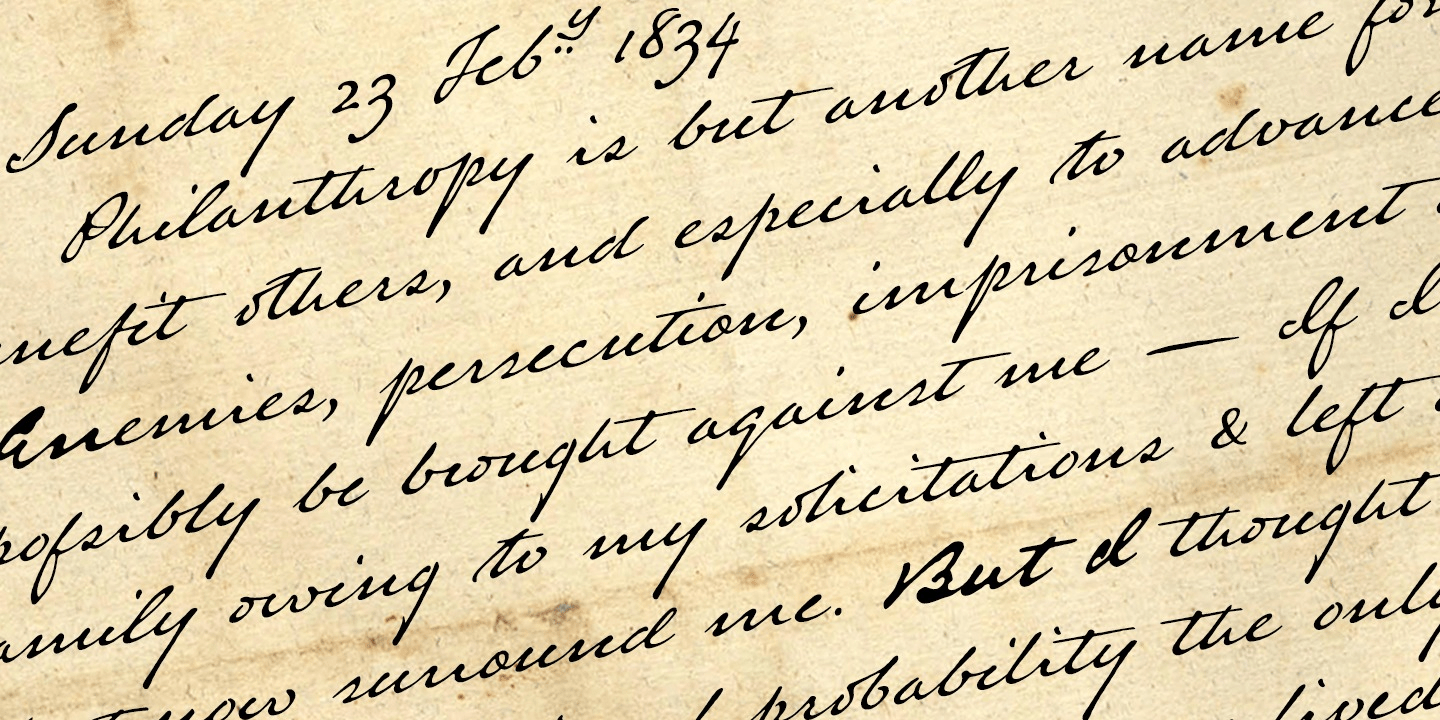 Sunday 23 Feb.y 1834
Philanthropy is but another name for
nefit others, and especially to advance
Enemies, persecution, imprisonment
pofsibly be brought against me — If I
amily owing to my solicitations & left
now surround me. But I thought
probability the only
lived